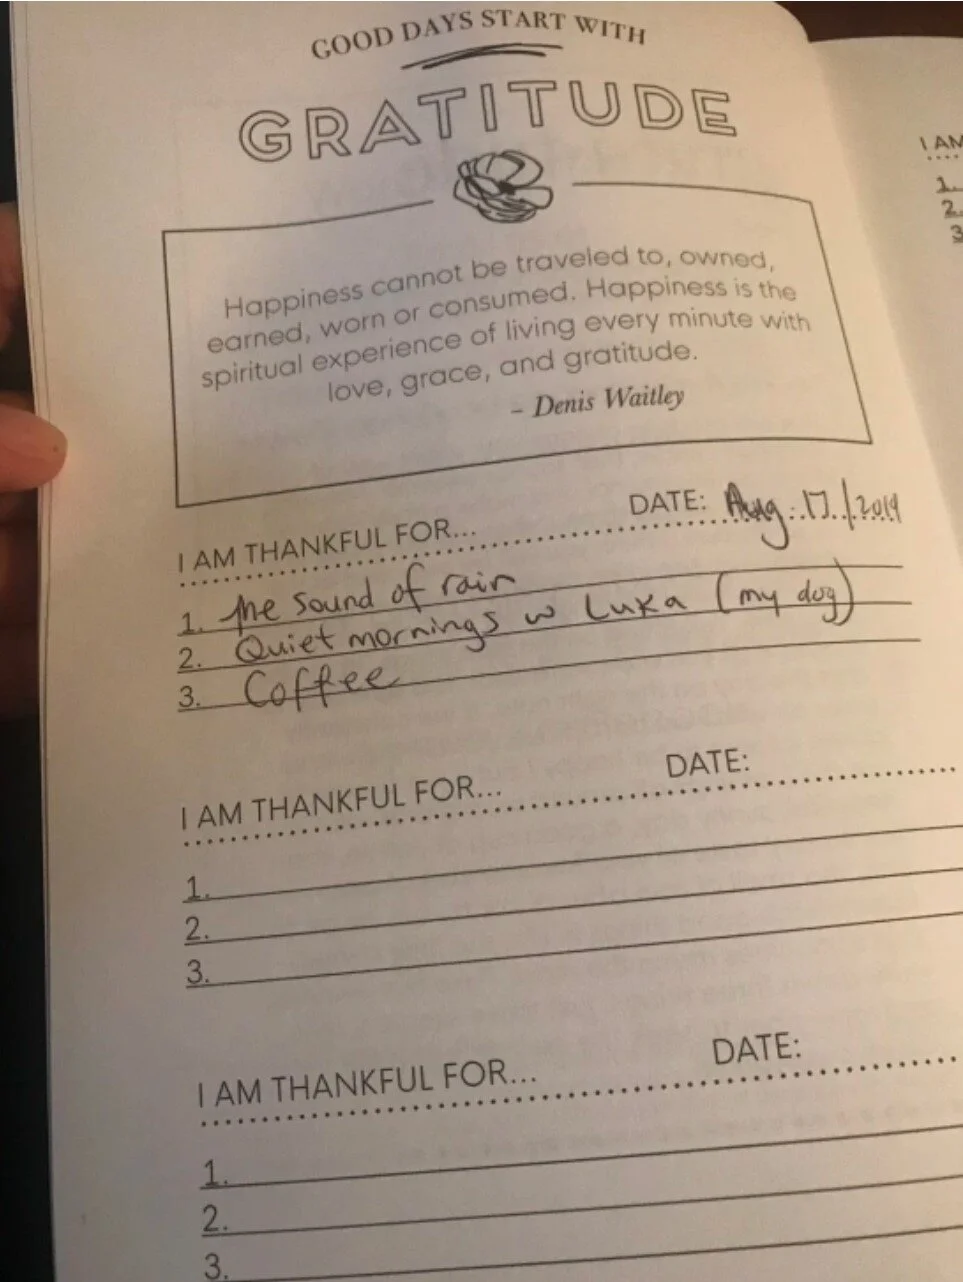 GOOD DAYS START WITH
GRATITUDE
Happiness cannot be traveled to, owned,
earned, worn or consumed. Happiness is the
spiritual experience of living every minute with
love, grace, and gratitude.
- Denis Waitley
I AM THANKFUL FOR... DATE: Aug. 17/2019
1. The sound of rain
2. Quiet mornings w Luka (my dog)
3. Coffee
I AM THANKFUL FOR... DATE:
1.
2.
3.
I AM THANKFUL FOR... DATE:
1.
2.
3.
I AM
1.
2.
3